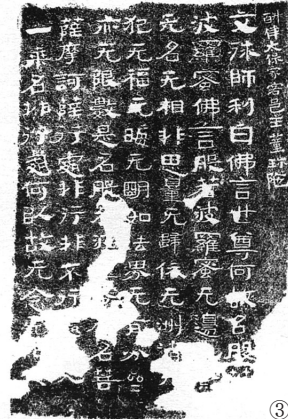 侍太保家客邑主董珍陀
文殊師利白佛言世尊何故名般
波羅蜜佛言般若波羅蜜无邊
无名无相非思量无歸依无洲渚
犯无福无晦无明如法界无有分齊
亦无限數是名般若 名菩
薩摩訶薩行處非行非不行
一乘名非行處何以故无念无
③